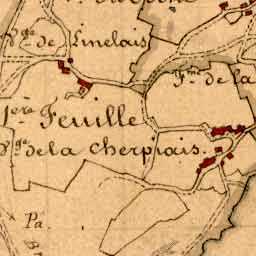 V.ge de Linelais
F.me de la
1ere Feuille
V.ge de la Cherpiais.
Pa